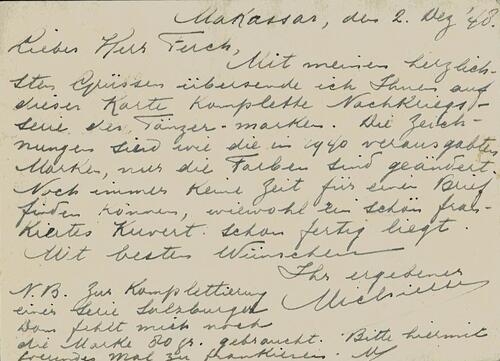 Makassar, den 2. Dez '48.
Lieber Herr Ferch,
Mit meinen herzlich-
sten Grüssen übersende ich Ihnen auf
dieser Karte komplette Nachkriegs-
serie der Tänzer-marken. Die Zeich-
nungen sind wie die in 1940 verausgabten
Marken, nur die Farben sind geändert.
Noch immer keine Zeit für einen Brief
finden können, wiewohl ein schön fran-
kiertes Kuvert schon fertig liegt.
Mit besten Wünschen
Ihr ergebener
N.B. Zur Komplettierung
einer Serie Salzburger
Dom fehlt mich noch
die Marke 80 gr. gebraucht. Bitte hiermit
Mal zu frankieren. M